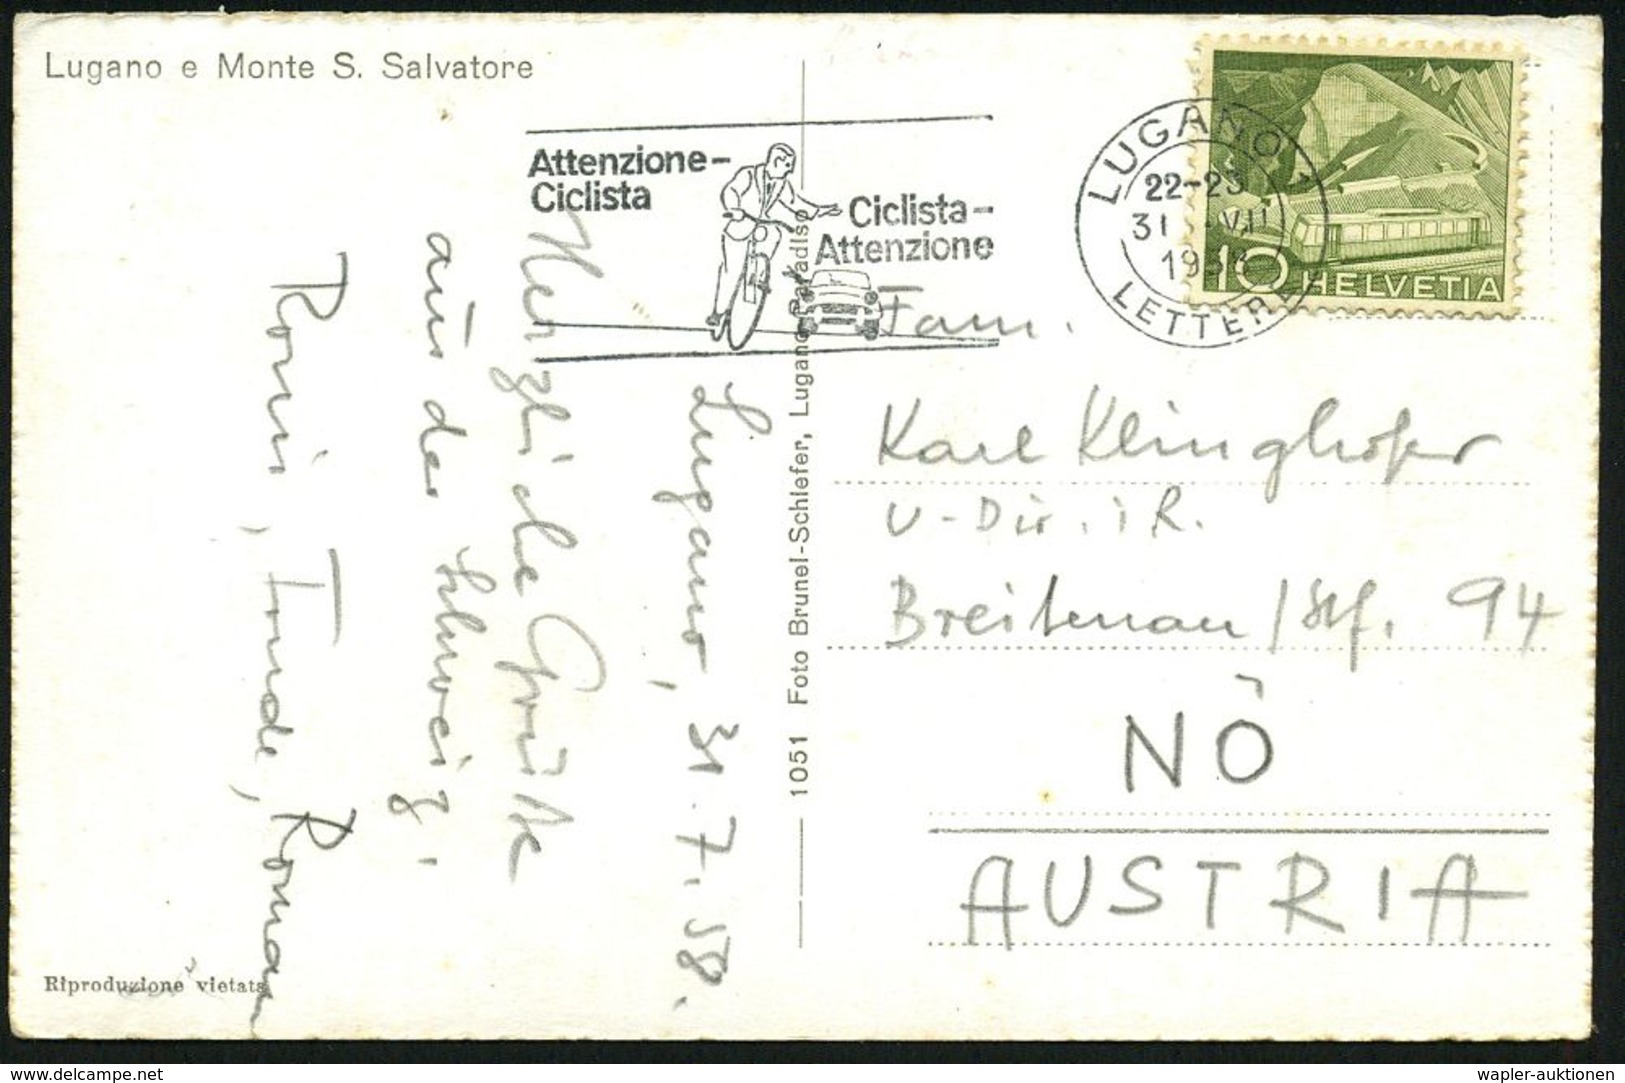 Lugano e Monte S. Salvatore
Attenzione-
Ciclista
Ciclista-
Attenzione
LUGANO 1
22-23
31 VII
1958
LETTERE
10 HELVETIA
Lugano, 31.7.58.
Herzliche Grüße
aus der Schweiz.
Romi, Trude, Roman
1051 Foto Brunel-Schlefer, Lugano-Paradiso
Fam.
Karl Klinghofer
U-Dir. i R.
Breitenau / Stf. 94
NÖ
AUSTRIA
Riproduzione vietata
www.delcampe.net
wapler-auktionen